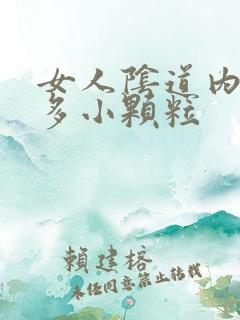 女人陰道內
多小顆粒
賴建榕
未任同意禁止轉載